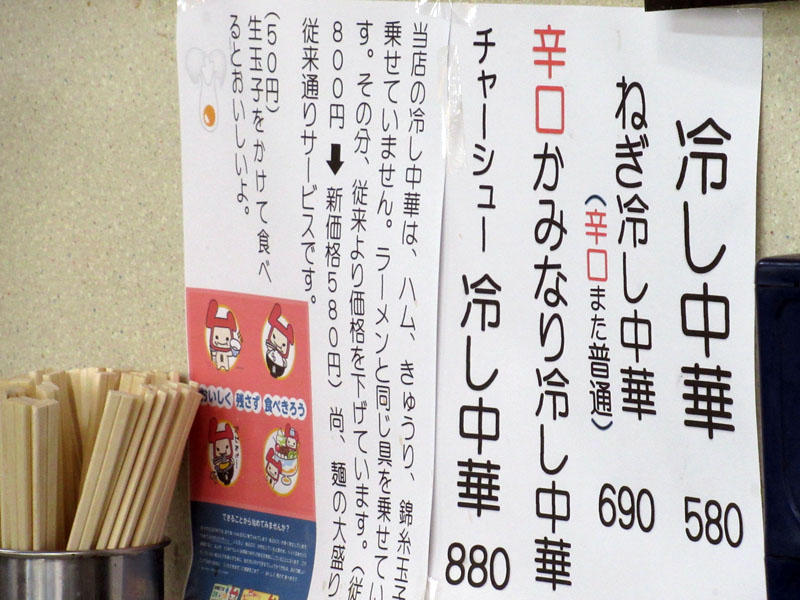 冷し中華 580
ねぎ冷し中華 690
(辛口また普通)
辛口かみなり冷し中華
チャーシュー 冷し中華 880
当店の冷し中華は、ハム、きゅうり、錦糸玉子
乗せていません。ラーメンと同じ具を乗せてい
す。その分、従来より価格を下げています。(従
800円➡新価格580円)尚、麺の大盛り
従来通りサービスです。
(50円)
生玉子をかけて食べ
るとおいしいよ。
おいしく 残さず 食べきろう
できることから始めてみませんか?